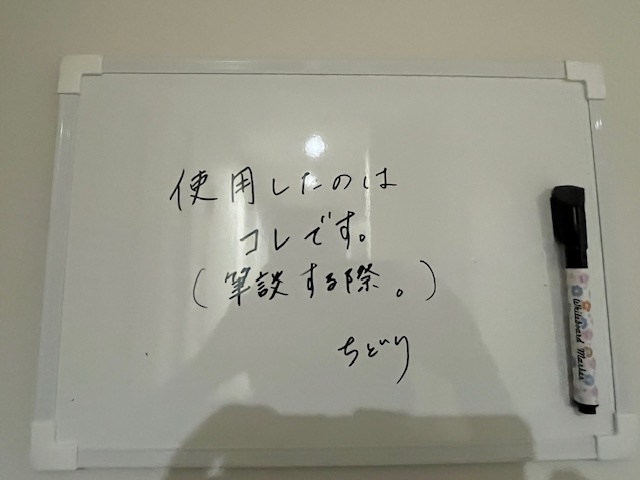 使用したのは
コレです。
(筆談する際。)
ちどり
Whiteboard Marker